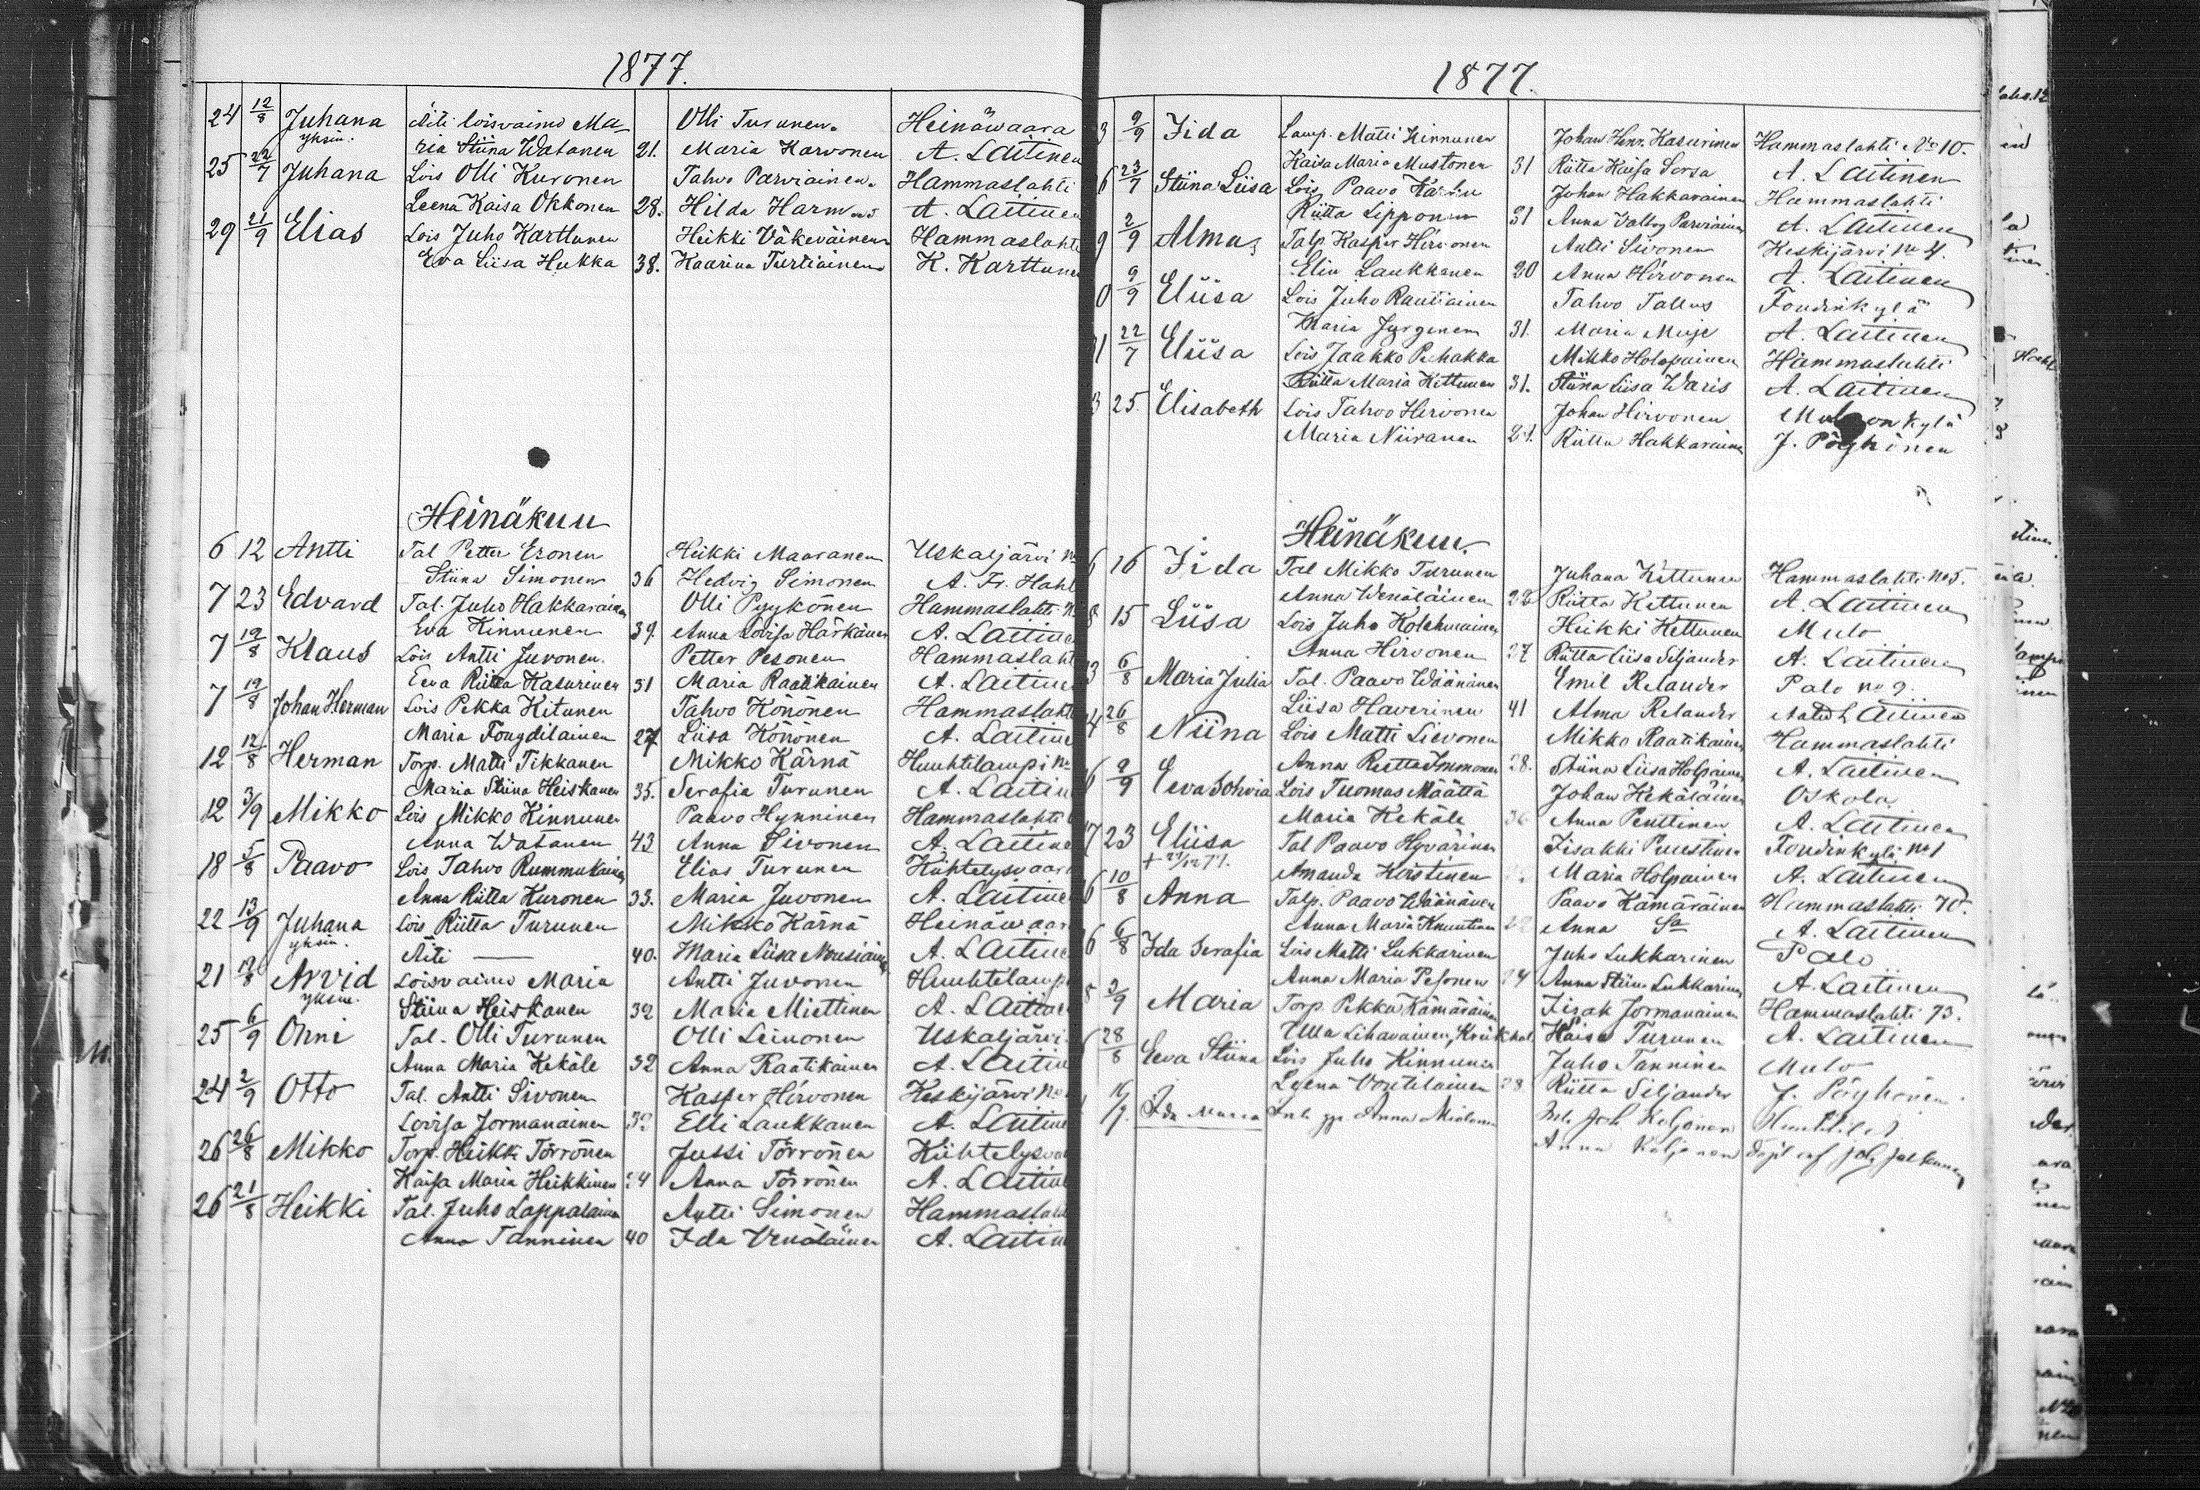 1877.
24 12/8 Juhana Äiti loisvaimo Ma- Olli Turunen. Heinäwaara
yksin. ria Stiina Watanen 21. Maria Karvonen A. Laitinen
25 22/7 Juhana Lois Olli Kuronen Tahvo Parviainen. Hammaslahti
Leena Kaisa Okkonen 28. Hilda A. Laitinen
29 21/9 Elias Lois Juho Karttunen Heikki Väkeväinen Hammaslahti
Eva Liisa Hukka 38. Kaarina Turtiainen K. Karttunen
Heinäkuu
6 12 Antti Tal Petter Eronen Heikki Maaranen Uskaljärvi
Stiina Simonen 36 Hedvig Simonen A. Fr. Hahl
7 23 Edvard Tal. Juho Hakkarainen Olli Pyykönen Hammaslahti
Eva Kinnunen 39. Anna Lovisa Härkänen A. Laitinen
7 19/8 Klaus Lois Antti Juvonen. Petter Pesonen Hammaslahti
Eeva Riitta Kasurinen 31 Maria Raatikainen A. Laitinen
7 19/8 Johan Herman Lois Pekka Kitunen Tahvo Könönen Hammaslahti
Maria Fougdilainen 27 Liisa Könönen A. Laitinen
12 12/8 Herman Torp. Matti Tikkanen Mikko Kärnä Huuhtilampi No
Maria Stiina Heiskanen 35. Serafia Turunen A. Laitinen
12 3/9 Mikko Lois Mikko Kinnunen Paavo Hynninen Hammaslahti
Anna Watanen 43 Anna Sivonen A. Laitinen
18 5/8 Paavo Lois Tahvo Rummukainen Elias Turunen Kiihtelysvaara
Anna Riitta Kuronen 33. Maria Juvonen A. Laitinen
22 13/9 Juhana Lois Riitta Turunen Mikko Kärnä Heinäwaara
yksin. Äiti — 40. Maria Liisa Nousiainen A. Laitinen
21 Arvid Loisvaimo Maria Antti Juvonen Huuhtilampi
yksin. Stiina Heiskanen 32 Maria Miettinen A. Laitinen
25 6/9 Onni Tal. Olli Turunen Olli Leinonen Uskaljärvi
Anna Maria Kekäle 32 Anna Raatikainen A. Laitinen
24 2/9 Otto Tal. Antti Sivonen Kasper Hirvonen Keskijärvi No
Lovisa Jormanainen Elli Laukkanen A. Laitinen
26 26/8 Mikko Torp. Heikki Törrönen Jussi Törrönen Kiihtelysvaara
Kaisa Maria Heikkinen 24 Anna Törrönen A. Laitinen
26 21/8 Heikki Tal. Juho Lappalainen Antti Simonen Hammaslahti
Anna Tanninen 40 Ida Venäläinen A. Laitinen
1877.
3 9/9 Iida Lamp. Matti Kinnunen Johan Henr. Kasurinen Hammaslahti No 10.
Kaisa Maria Mustonen 31 Riitta Kaisa Sorsa A. Laitinen
6 23/7 Stiina Liisa Lois Paavo Johan Hakkarainen Hammaslahti
Riitta Lipponen 31 Anna Valbog Parviainen A. Laitinen
9 2/9 Alma Talp. Kasper Hirvonen Antti Sivonen Keskijärvi No 4.
Elin Laukkanen 20 Anna Hirvonen A. Laitinen
0 9/9 Eliisa Lois Juho Rautiainen Tahvo Tallus Foudinkylä
Maria Jyrginen 31. Maria A. Laitinen
1 22/7 Eliisa Lois Jaakko Puhakka Mikko Holopainen Hammaslahti
Riitta Maria Kettunen 31. Stiina Liisa Waris A. Laitinen
3 25. Elisabeth Lois Tahvo Hirvonen Johan Hirvonen
Maria Niiranen Riitta Hakkarainen J. Pöyhönen
Heinäkuu.
6 16 Iida Tal Mikko Turunen Juhana Kettunen Hammaslahti No 5.
Anna Wenäläinen 22 Riitta Kettunen A. Laitinen
8 15 Liisa Lois Juho Kolehmainen Heikki Kettunen Mulo
Anna Hirvonen 27 Riitta Liisa Siljander A. Laitinen
3 6/8 Maria Julia Tal. Paavo Wäänänen Emil Relander Palo no 9.
Liisa Haverinen 41 Alma Relander Laitinen
4 26/8 Niina Lois Matti Sievonen Mikko Raatikainen Hammaslahti
Anna Riitta Immonen 28. Stiina Liisa Holpainen A. Laitinen
6 9/9 Eeva Sohvia Lois Tuomas Määttä Johan Kekäläinen Oskola
Maria Kekäle Anna Penttinen A. Laitinen
17 23 Eliisa Tal Paavo Hyvärinen Iisakki Puustinen Foudinkylä No 1
Amanda Koistinen Maria Holpainen A. Laitinen
6 10/8 Anna Talp. Paavo Wäänänen Paavo Kämäräinen Hammaslahti 70.
Anna Maria Knuutinen Anna Sa A. Laitinen
6 6/8 Ida Serafia Lois Matti Lukkarinen Juho Lukkarinen Palo
Anna Maria Pesonen 24 Anna Stiina Lukkarinen A. Laitinen
2/9 Maria Torp. Pekka Kämäräinen Iisak Jormanainen Hammaslahti 73.
Ulla Lihavainen Kaisa Turunen A. Laitinen
28/8 Eeva Stiina Lois Juho Kinnunen Juho Tanninen Mulo
Leena Vontilainen 28 Riitta Siljander J. Pöyhönen
Ida Maria Anna Joh Koljonen
Anna Koljonen